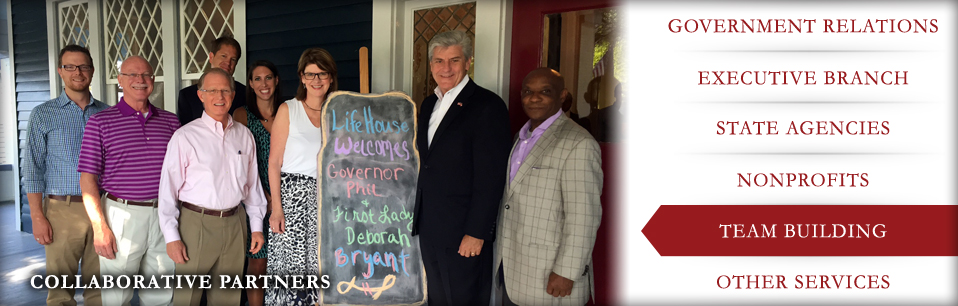 LifeHouse
Welcomes
Governor
Phil
&
First Lady
Deborah
Bryant
COLLABORATIVE PARTNERS
GOVERNMENT RELATIONS
EXECUTIVE BRANCH
STATE AGENCIES
NONPROFITS
TEAM BUILDING
OTHER SERVICES